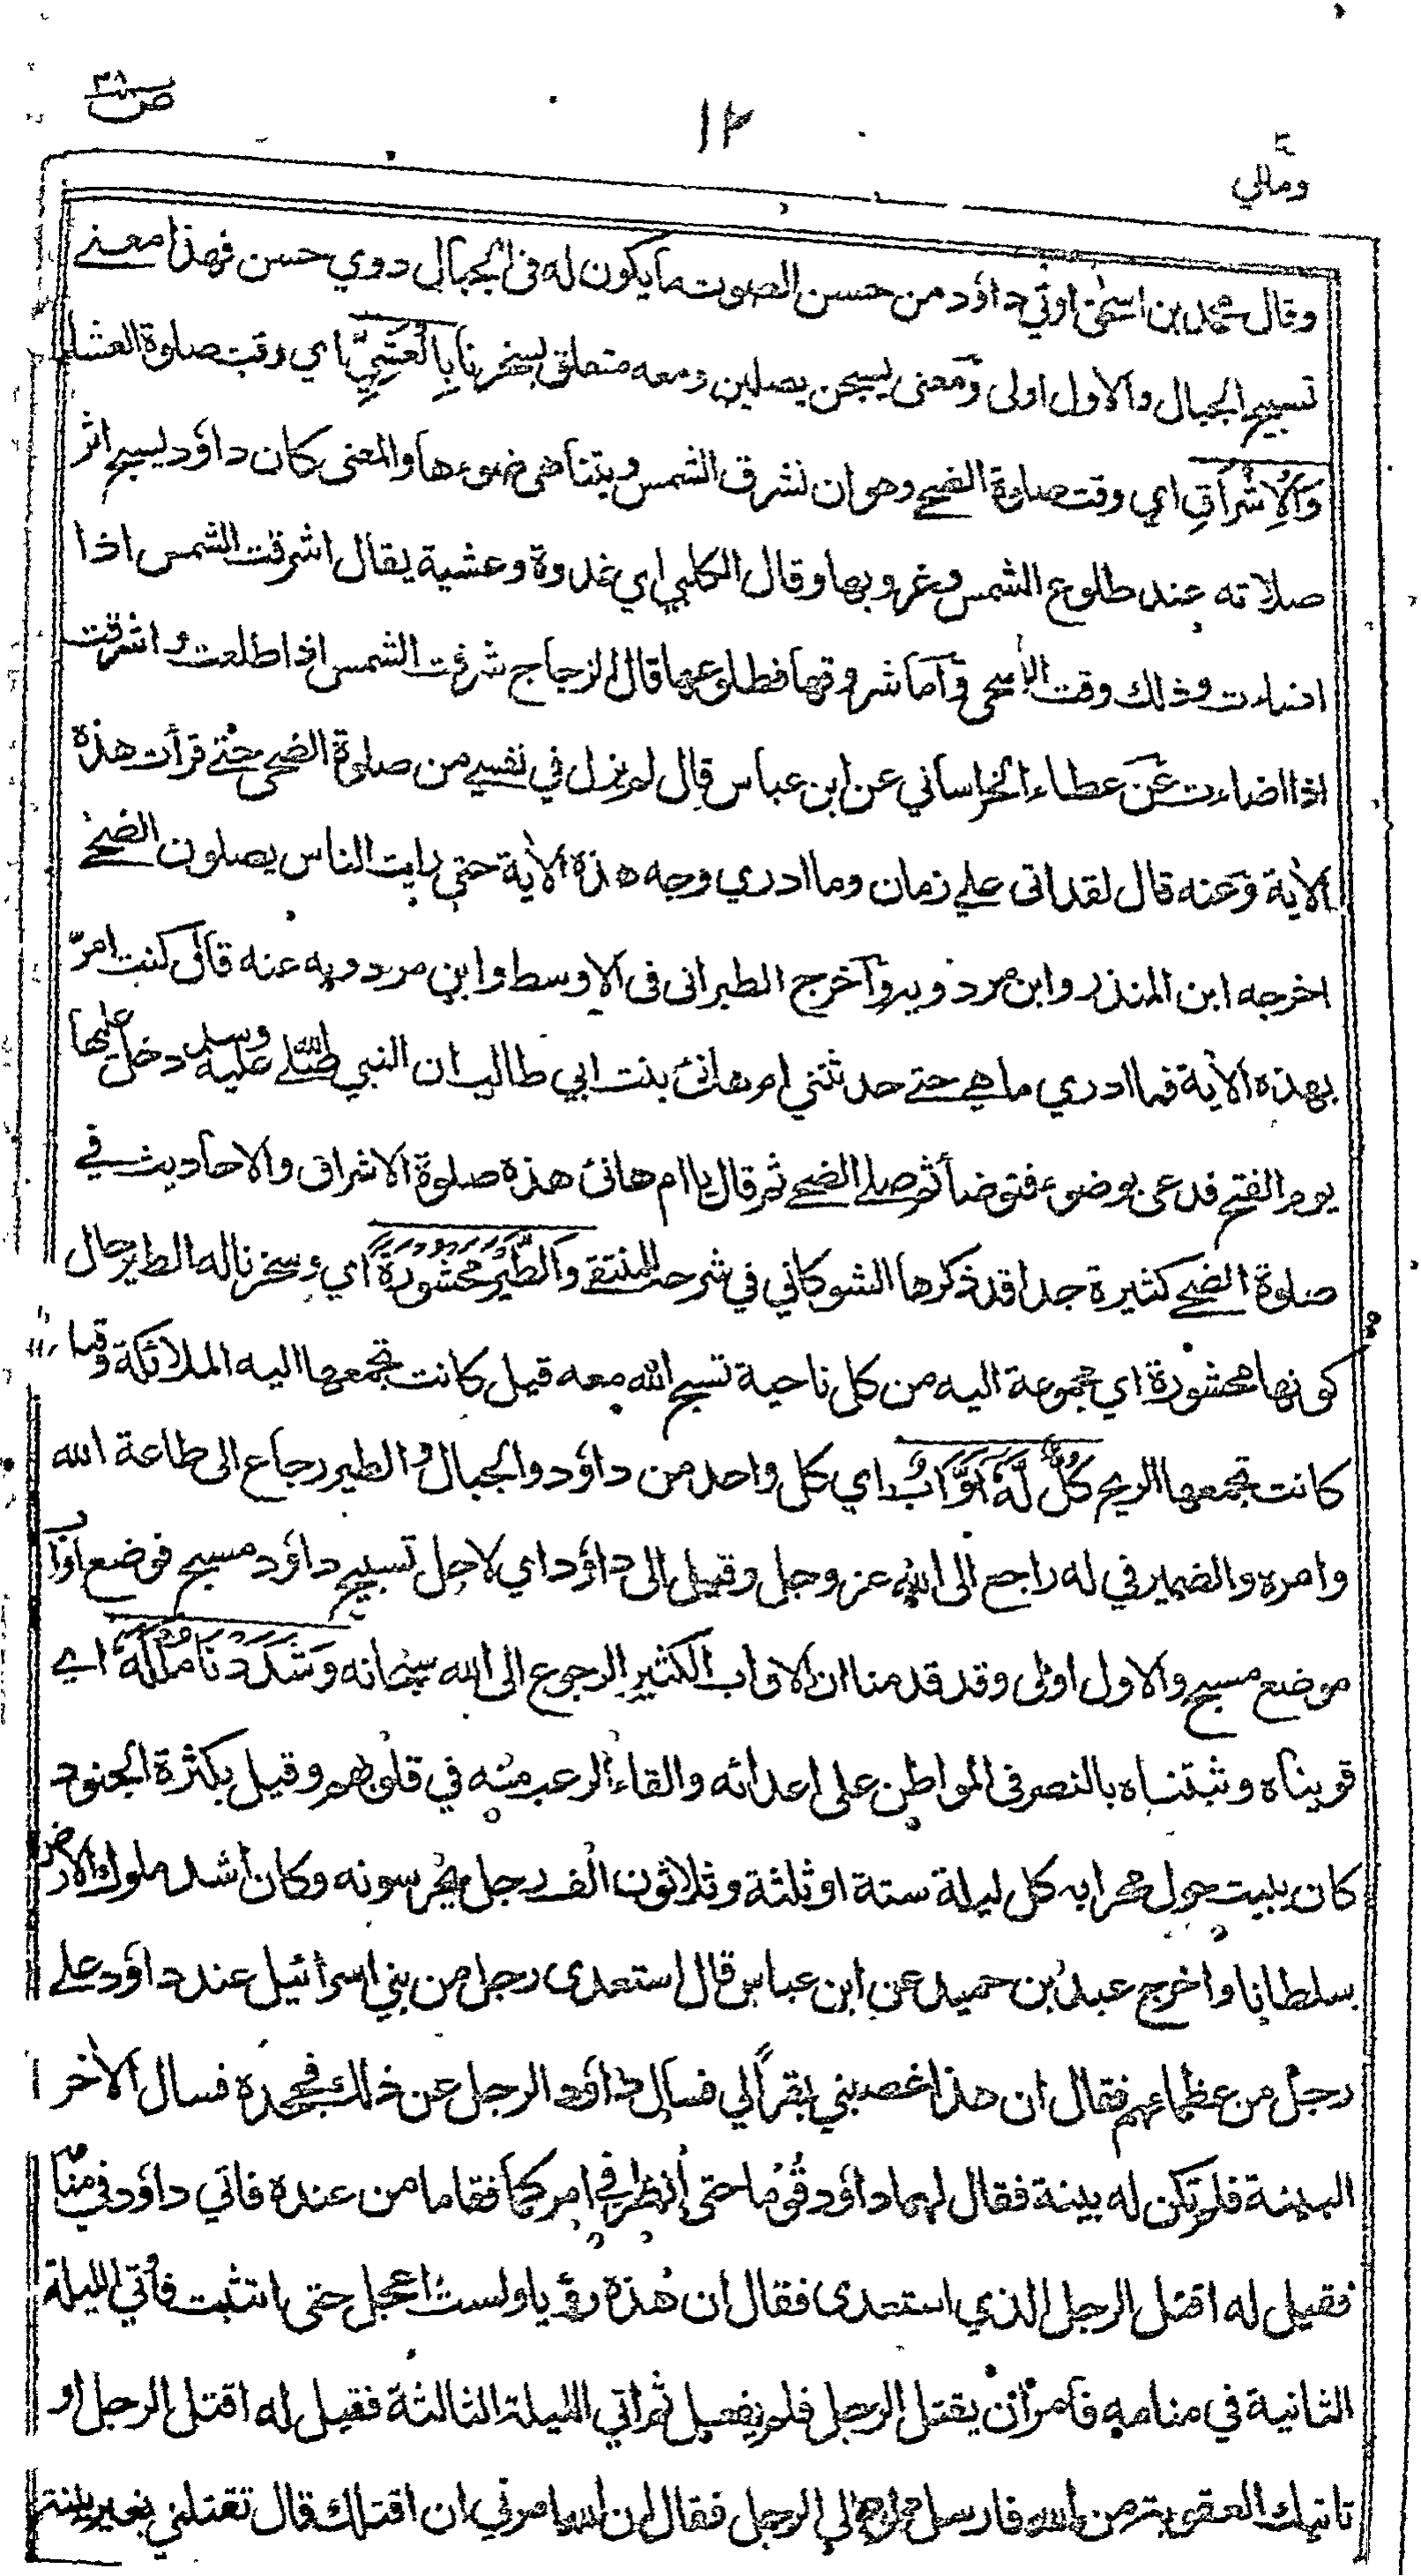 ص ٣٨
١٢
ومالي
وقال محمد بن اسحٰق اوتي داؤد من حسن الصوت ما يكون له فى الجبال دوي حسن فهذا معنے
تسبيح الجبال والاول اولى ومعنى يسبحن يصلين ومعه متعلق بسخرنا بِالْعَشِيِّ اي وقت صلوة العشاء
وَالْاِشْرَاقِ اي وقت صلوة الضحے وهو ان تشرق الشمس ويتناهى ضوءها والمعنى كان داؤد يسبح اثر
صلاته عند طلوع الشمس وغروبها وقال الكلبي اي غدوة وعشية يقال اشرقت الشمس اذا
اضاءت وذلك وقت الضحى وآما شروقها فطلوعها قال الزجاج شرقت الشمس اذا طلعت واشرقت
اذا اضاءت عن عطاء الخراساني عن ابن عباس قال لم يزل في نفسے من صلوة الضحى حتے قرأت هذه
الآية وعنه قال لقد اتى علي زمان وما ادري وجه هذه الآية حتى رايت الناس يصلون الضحے
اخرجه ابن المنذر وابن مردويه وآخرج الطبرانى فى الاوسط وابن مردويه عنه قال كنت امرّ
بهذه الآية فما ادري ما هي حتے حدثتني ام هانئ بنت ابي طالب ان النبي صلے الله عليه وسلم دخل عليها
يوم الفتح فدعى بوضوء فتوضأ ثم صلے الضحے ثم قال يا ام هانئ هذه صلوة الاشراق والاحاديث في
صلوة الضحے كثيرة جدا قد ذكرها الشوكاني في شرحه للمنتقے وَالطَّيْرَ مَحْشُورَةً اي وسخرنا له الطير حال
كونها محشورة اي مجموعة اليه من كل ناحية تسبح الله معه قيل كانت تجمعها اليه الملائكة وقيل
كانت تجمعها الريح كُلٌّ لَّهٗ اَوَّابٌ اي كل واحد من داؤد والجبال والطير رجاع الى طاعة الله
وامره والضمير في له راجع الى الله عز وجل وقيل الى داؤد اي لاجل تسبيح داؤد مسبح فوضع اواب
موضع مسبح والاول اولى وقد قدمنا ان الاواب الكثير الرجوع الى الله سبحانه وَشَدَدْنَا مُلْكَهٗ اے
قويناه وثبتناه بالنصر فى المواطن على اعدائه والقاء الرعب منه في قلوبهم وقيل بكثرة الجنود
كان يبيت حول محرابه كل ليلة ستة او ثلثة وثلاثون الف رجل يحرسونه وكان اشد ملوك الارض
سلطانا واخرج عبد بن حميد عن ابن عباس قال استعدى رجل من بني اسرائيل عند داؤد على
رجل من عظمائهم فقال ان هذا غصبني بقرا لي فسال داؤد الرجل عن ذلك فجحده فسال الآخر
البينة فلم تكن له بينة فقال لهما داؤد قوما حتى انظر في امركما فقاما من عنده فاتي داؤد في منامه
فقيل له اقتل الرجل الذي استعدى فقال ان هذه رؤيا ولست اعجل حتى اتثبت فأتي الليلة
الثانية في منامه فأمر ان يقتل الرجل فلم يفعل ثم اتي الليلة الثالثة فقيل له اقتل الرجل او
تاتيك العقوبة من الله فارسل داؤد الي الرجل فقال ان الله امرني ان اقتلك قال تقتلني بغير بينة